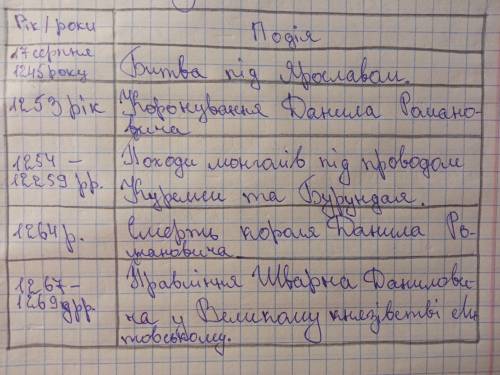 Рік/роки Подія
17 серпня
1245 року Битва під Ярославом.
1253 рік Коронування Данила Романо-
вича
1254 – Походи монголів під проводом
12259 рр. Куремси та Бурундая.
1264 р. Смерть короля Данила Ро-
мановича
1267 – Правління Шварна Данилови-
1269 рр. ча у Великому князівстві Ли-
товському.